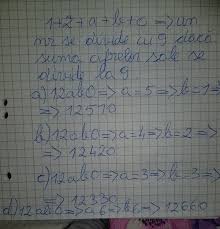 1+2+a+b+0 => un
nr se divide cu 9 dacă
suma cifrelor sale se
divide la 9
a) 12ab0 => a=5 => b=1 =>
=> 12510
b) 12ab0 => a=4 => b=2 =>
=> 12420
c) 12ab0 => a=3 => b=3 =>
=> 12330
d) 12ab0 => a=6 => b=6 => 12660